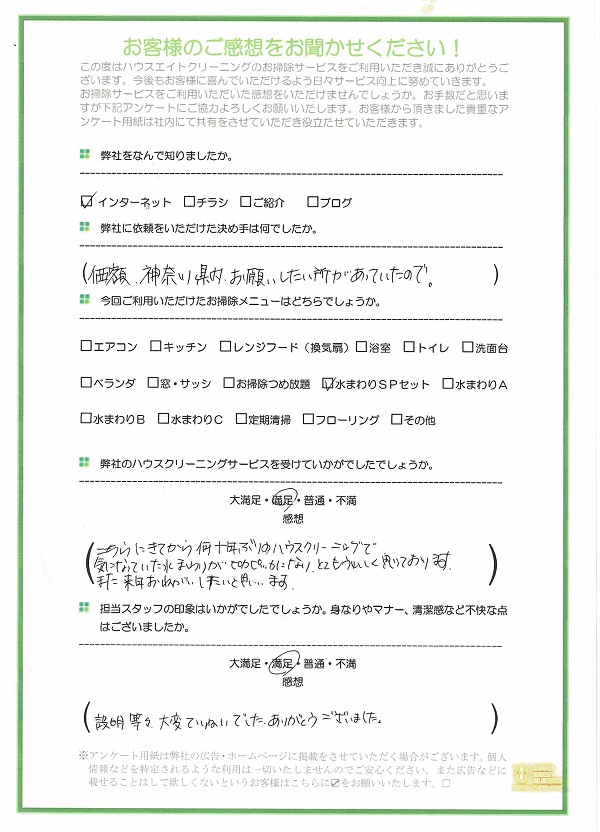 お客様のご感想をお聞かせください！
この度はハウスエイトクリーニングのお掃除サービスをご利用いただき誠にありがとうご
ざいます。今後もお客様に喜んでいただけるよう日々サービス向上に努めていきます。
お掃除サービスをご利用いただいた感想をいただけませんでしょうか。お手数だと思いま
すが下記アンケートにご協力よろしくお願いいたします。お客様から頂きました貴重なア
ンケート用紙は社内にて共有をさせていただき役立たせていただきます。
弊社をなんで知りましたか。
☑インターネット □チラシ □ご紹介 □ブログ
弊社に依頼をいただけた決め手は何でしたか。
(価額、神奈川県内、お願いしたい所があっていたので。)
今回ご利用いただけたお掃除メニューはどちらでしょうか。
□エアコン □キッチン □レンジフード（換気扇）□浴室 □トイレ □洗面台
□ベランダ □窓・サッシ □お掃除つめ放題 ☑水まわりSPセット □水まわりA
□水まわりB □水まわりC □定期清掃 □フローリング □その他
弊社のハウスクリーニングサービスを受けていかがでしたでしょうか。
大満足・満足・普通・不満
感想
(こちらにきてから何十年ぶりのハウスクリーニングで
気になっていた水まわりがピカピカになり、とてもうれしく思っております。
また来年おねがいしたいと思います。)
担当スタッフの印象はいかがでしたでしょうか。身なりやマナー、清潔感など不快な点
はございましたか。
大満足・満足・普通・不満
感想
(説明等々、大変ていねいでした。ありがとうございました。)
※アンケート用紙は弊社の広告・ホームページに掲載をさせていただく場合がございます。個人
情報などを特定されるような利用は一切いたしませんのでご安心ください。また広告などに
載せることはして欲しくないというお客様はこちらに☑をお願いいたします。□